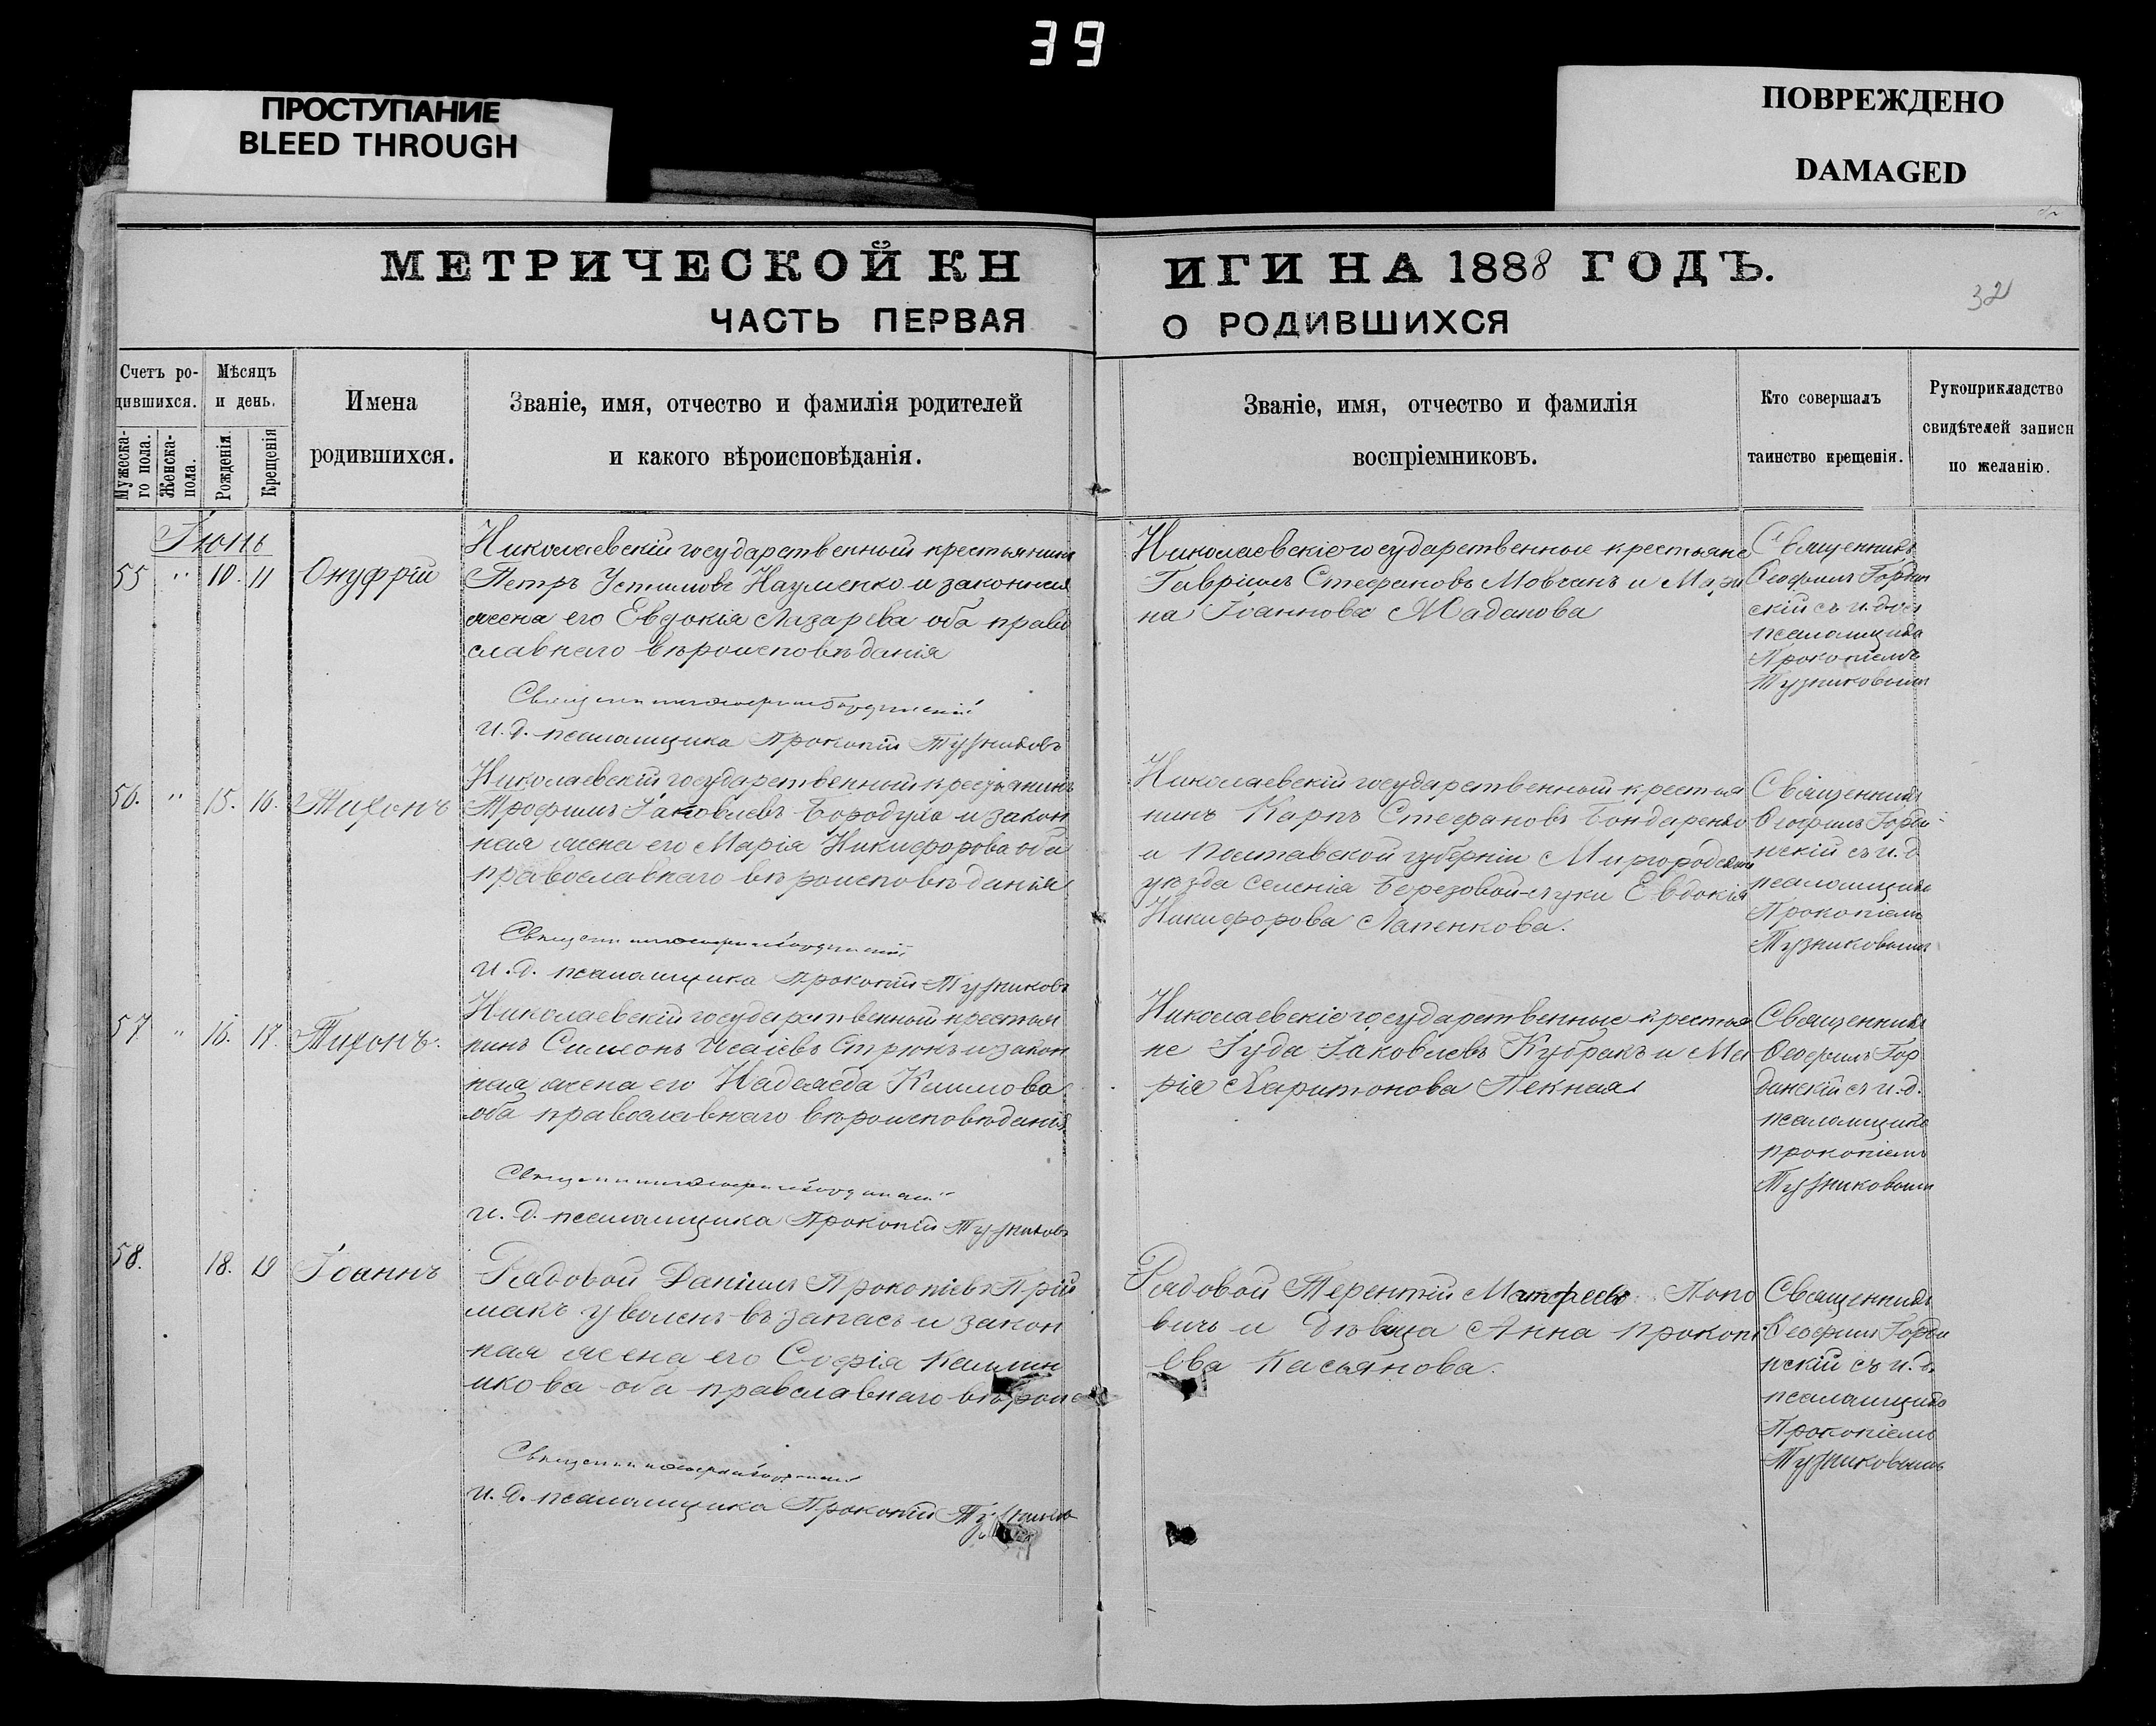 39
ПРОСТУПАНИЕ
BLEED THROUGH
ПОВРЕЖДЕНО
DAMAGED
МЕТРИЧЕСКОЙ КНИГИ НА 1888 ГОДЪ.
32
ЧАСТЬ ПЕРВАЯ О РОДИВШИХСЯ
Счетъ ро-
дившихся.
Мужеска-
го пола.
Женска-
пола.
Мѣсяцъ
и день.
Рожденія.
Крещенія
Имена
родившихся.
Званіе, имя, отчество и фамилія родителей
и какого вѣроисповѣданія.
Званіе, имя, отчество и фамилія
воспріемниковъ.
Кто совершалъ
таинство крещенія.
Рукоприкладство
свидѣтелей записи
по желанію.
Іюнь
55 " 10. 11 Онуфрій
Николаевскій государственный крестьянинъ
Петръ Устимовъ Науменко и законная
жена его Евдокія Лазарева оба право
славнаго вѣроисповѣданія
Священникъ
и. д. псаломщика Прокопій Тузниковъ
Николаевскіе государственные крестьяне
Гавріилъ Стефановъ Мовчанъ и Мари
на Іоаннова
Священникъ
Ѳеофилъ
скій съ и. д.
псаломщика
Прокопіемъ
Тузниковымъ
56. " 15. 16. Тихонъ
Николаевскій государственный крестьянинъ
Трофимъ Іаковлевъ Бородула и закон
ная жена его Марія Никифорова оба
православнаго вѣроисповѣданія
Священникъ
и. д. псаломщика Прокопій Тузниковъ
Николаевскій государственный крестья
нинъ Карпъ Стефановъ Бондаренко
и Полтавской губерніи Миргородскаго
уѣзда селенія Березовой-луки Евдокія
Никифорова Лапенкова.
Священникъ
Ѳеофилъ Горди
нскій съ и. д
псаломщика
Прокопіемъ
Тузниковымъ
57 " 16. 17. Тихонъ.
Николаевскій государственный крестья
нинъ Симеонъ Исаіевъ Стрюкъ и закон
ная жена его Надежда Климова
оба православнаго вѣроисповѣданія.
Священникъ
и. д. псаломщика Прокопій Тузниковъ
Николаевскіе государственные крестья
не Іуда Іаковлевъ Кубракъ и Ма
рія Харитонова Пекная
Священникъ
Ѳеофилъ Гор
динскій съ и. д.
псаломщика
Прокопіемъ
Тузниковымъ
58. 18. 19 Іоаннъ
Рядовой Даніилъ Прокопіевъ Прій
макъ уволенъ въ запасъ и закон
ная жена его Софія
икова оба православнаго вѣроис
Священникъ
и. д. псаломщика Прокопій
Рядовой Терентій Матфеевъ Попо
вичъ и дѣвица Анна Прокопі
ева Касьянова.
Священникъ
Ѳеофилъ Горди
нскій съ и. д.
псаломщика
Прокопіемъ
Тузниковымъ